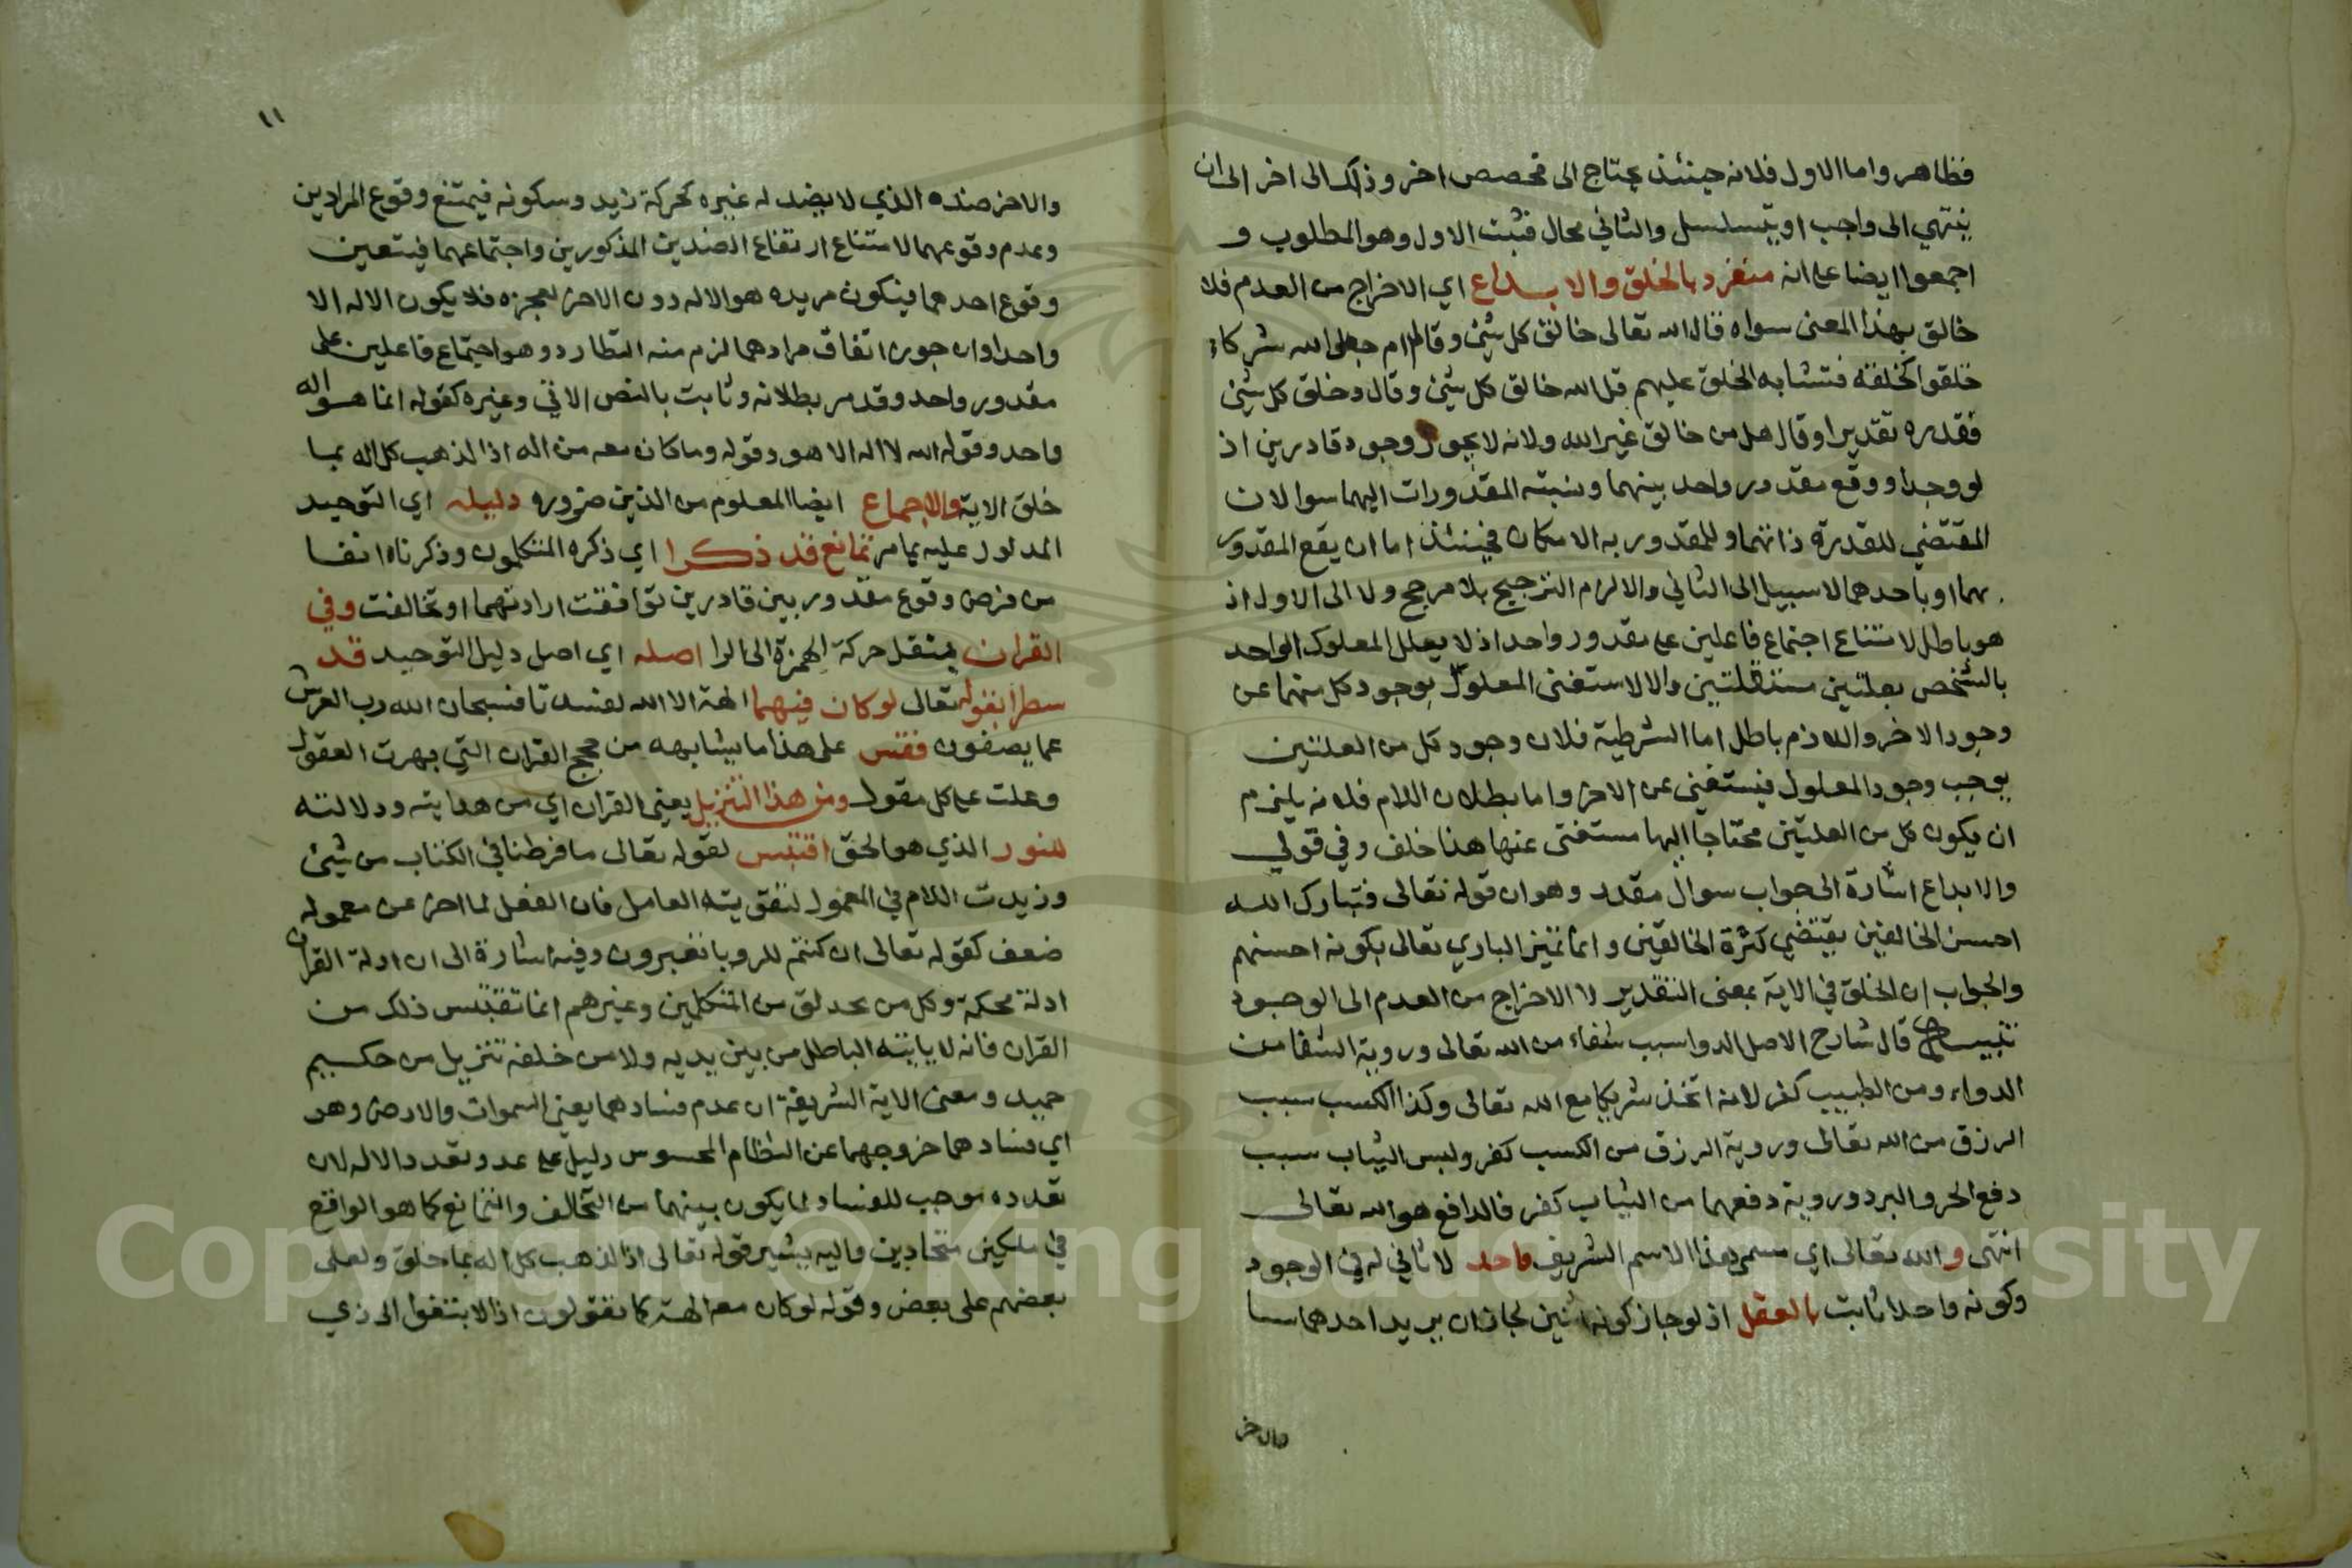 فظاهر واما الاول فلانه حينئذ يحتاج الى مخصص اخر وذلك الى اخر الى ان
ينتهي الى واجب او يتسلسل والثاني محال فثبت الاول وهو المطلوب و
اجمعوا ايضا على انه منفرد بالخلق والابداع اي الاخراج من العدم فلا
خالق بهذا المعنى سواه قال الله تعالى خالق كل شئ وقال ام جعلوا لله شركاء
خلقوا كخلقه فتشابه الخلق عليهم قل الله خالق كل شئ وقال وخلق كل شئ
فقدره تقديرا وقال هل من خالق غير الله ولانه لا يجوز وجود قادرين اذ
لو وجدا ووقع مقدور واحد بينهما ونسبته المقدورات اليهما سوا لان
المقتضي للقدرة ذاتهما وللمقدوريه الامكان فحينئذ اما ان يقع المقدور
بهما او باحدهما لا سبيل الى الثاني والا لزم الترجيح بلا مرجح ولا الى الاول اذ
هو باطل لامتناع اجتماع فاعلين على مقدور واحد اذ لا يعلل المعلول الواحد
بالشخص بعلتين مستقلتين والا لاستغنى المعلول بوجود كل منهما عن
وجود الاخر واللازم باطل اما الشرطية فلان وجود كل من العلتين
يوجب وجود المعلول فيستغنى عن الاخر واما بطلان اللازم فلانه يلزم
ان يكون كل من العلتين محتاجا اليها مستغنى عنها هذا خلف وفي قولي
والابداع اشارة الى جواب سوال مقدر وهو ان قوله تعالى فتبارك الله
احسن الخالقين يقتضي كثرة الخالقين وانما تميز الباري تعالى بكونه احسنهم
والجواب ان الخلق في الاية بمعنى التقدير لا الاخراج من العدم الى الوجود
تنبيه قال شارح الاصل الدوا سبب شفاء من الله تعالى وروية الشفا من
الدواء ومن الطبيب كفر لانه اتخذ شريكا مع الله تعالى وكذا الكسب سبب
الرزق من الله تعالى وروية الرزق من الكسب كفر ولبس الثياب سبب
دفع الحر والبرد وروية دفعهما من الثياب كفر فالدافع هو الله تعالى
انتهى والله تعالى اي مسمى هذا الاسم الشريف واحد لا ثاني له في الوجود
وكونه واحدا ثابت بالعقل اذ لو جاز كونه اثنين لجاز ان يريد احدهما شيا
والاخر
١١
والاخر ضده الذي لا ضد له غيره كحركة زيد وسكونه فيمتنع وقوع المرادين
وعدم وقوعهما لامتناع ارتفاع الضدين المذكورين واجتماعهما فيتعين
وقوع احدهما فيكون مريده هو الاله دون الاخر لعجزه فلا يكون الاله الا
واحدا وان جوزنا اتفاق مرادهما لزم منه التطارد وهو اجتماع فاعلين على
مقدور واحد وقد مر بطلانه وثابت بالنص الاتي وغيره كقوله انما هو اله
واحد وقوله الله لا اله الا هو وقوله وما كان معه من اله اذا لذهب كل اله بما
خلق الاية والاجماع ايضا المعلوم من الدين ضروره دليله اي التوحيد
المدلول عليه بما مر تمانع قد ذكرا اي ذكره المتكلمون وذكرناه انفا
من فرض وقوع مقدور بين قادرين توافقت ارادتهما او تخالفت وفي
القران بنقل حركة الهمزة الى الرا اصله اي اصل دليل التوحيد قد
سطرا بقوله تعالى لو كان فيهما الهة الا الله لفسدتا فسبحان الله رب العرش
عما يصفون فقس على هذا ما يشابهه من حجج القران التي بهرت العقول
وعلت على كل مقول ومن هذا التنزيل يعني القران اي من هدايته ودلالته
للنور الذي هو الحق اقتبس لقوله تعالى ما فرطنا في الكتاب من شئ
وزيدت اللام في المعمول لتقويته العامل فان الفعل لما اخر عن معموله
ضعف كقوله تعالى ان كنتم للرويا تعبرون وفيه اشارة الى ان ادلة القران
ادلة محكمة وكل من تحدلق من المتكلمين وغيرهم انما تقتبس ذلك من
القران فانه لا ياتيه الباطل من بين يديه ولا من خلفه تنزيل من حكيم
حميد ومعنى الاية الشريفة ان عدم فسادهما يعني السموات والارض وهو
اي فسادهما خروجهما عن النظام المحسوس دليل على عدم تعدد الاله لان
تعدده موجب للفساد لما يكون بينهما من التخالف والتمانع كما هو الواقع
في ملكين متحادين واليه يشير قوله تعالى اذا لذهب كل اله بما خلق ولعلى
بعضهم على بعض وقوله لو كان معه الهة كما تقولون اذا لابتغوا الى ذي
Copyright © King Saud University
1957